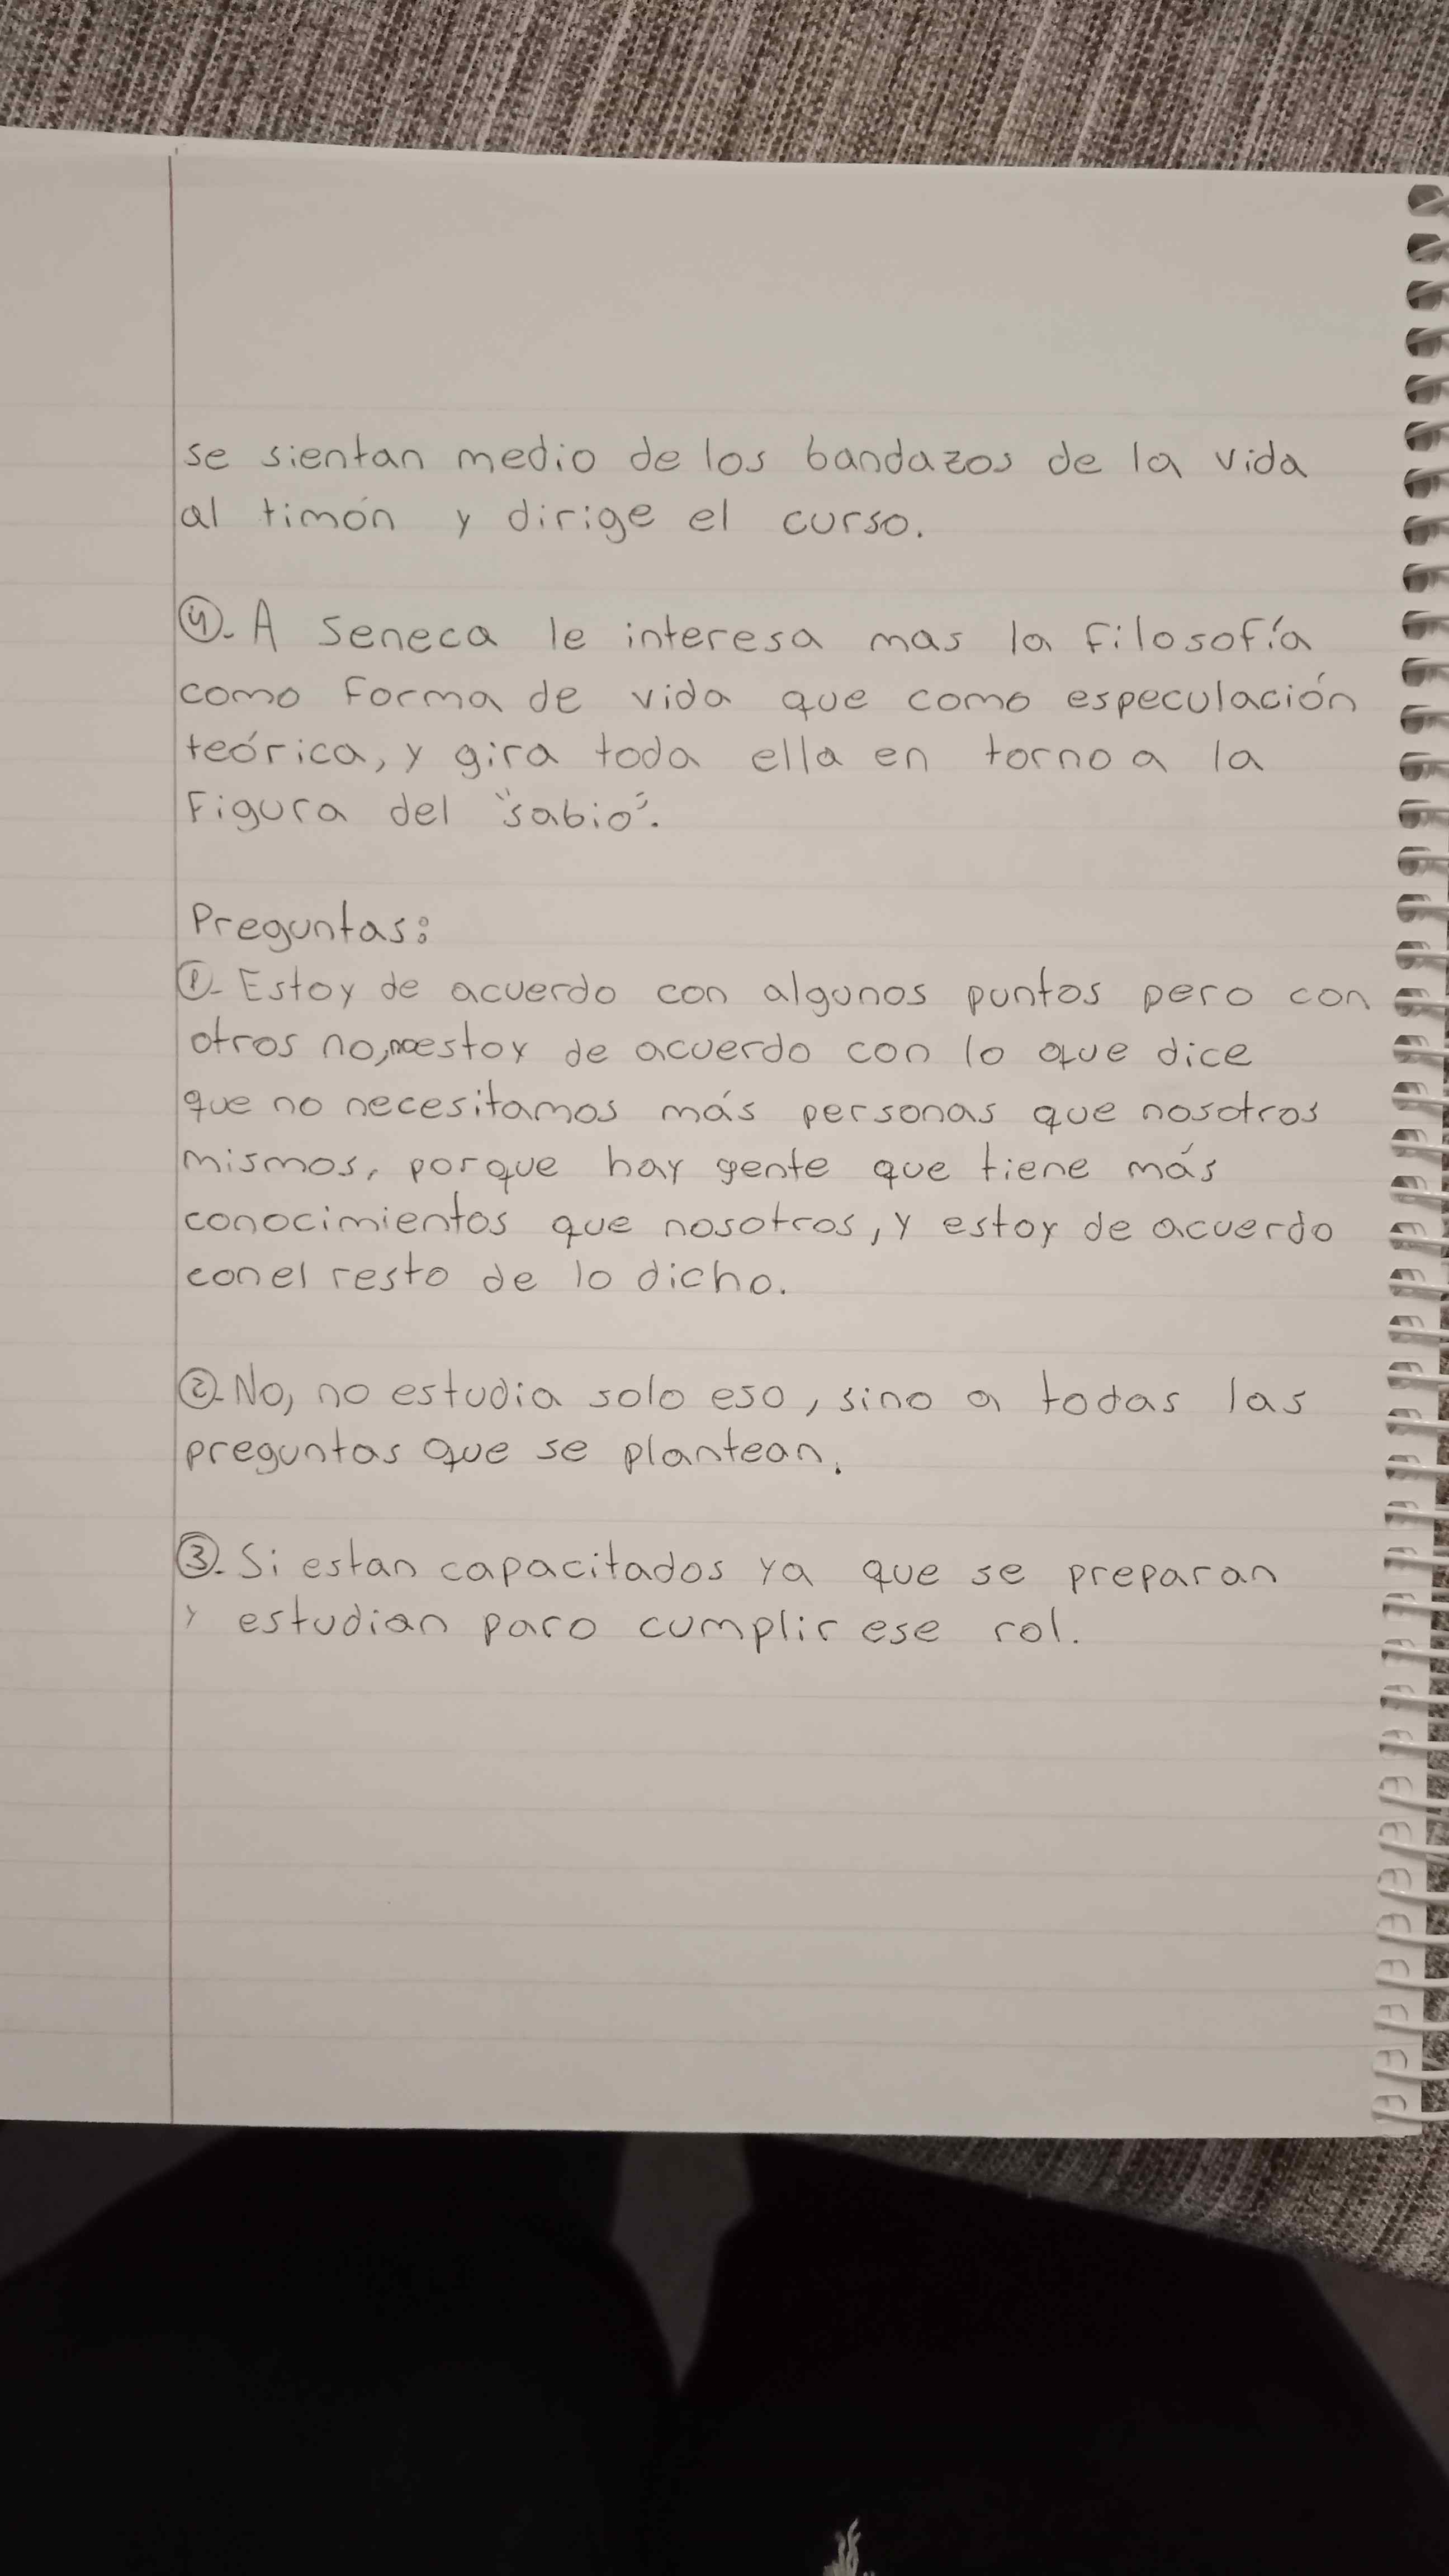 se sientan medio de los bandazos de la vida
al timón y dirige el curso.
④. A seneca le interesa mas la filosofía
como forma de vida que como especulación
teórica, y gira toda ella en torno a la
Figura del "sabio".
Preguntas:
①- Estoy de acuerdo con algunos puntos pero con
otros no, no estoy de acuerdo con lo que dice
que no necesitamos más personas que nosotros
mismos, porque hay gente que tiene más
conocimientos que nosotros, y estoy de acuerdo
con el resto de lo dicho.
②. No, no estudia solo eso, sino a todas las
preguntas que se plantean.
③. Si estan capacitados ya que se preparan
y estudian para cumplir ese rol.